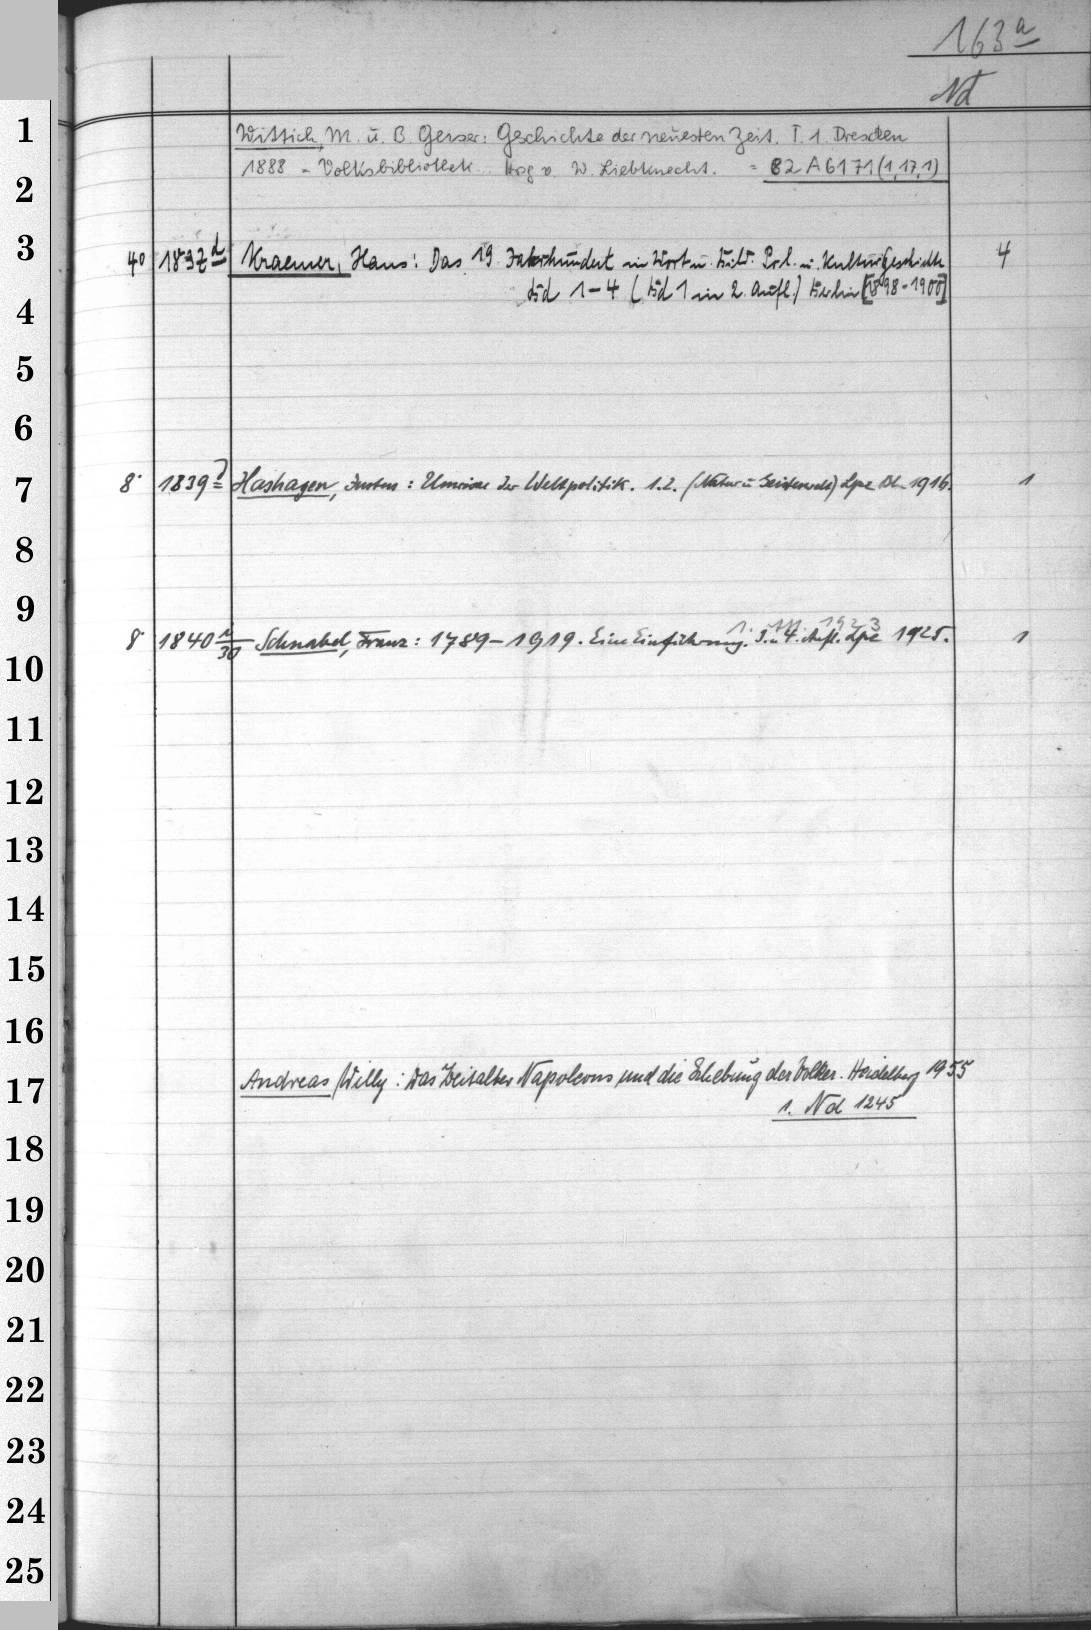 163a
Nd
Wittich, M. u. B. Geiser: Geschichte der neuesten Zeit. T. 1. Dresden
1888 = Volksbibliothek. Hrsg v. W. Liebknecht. = 82 A 6171 (1,17,1)
4o 1837d Kraemer, Hans: Das 19. Jahrhundert in Wort u. Bild. Pol. u. Kulturgeschichte 4
Bd 1-4 (Bd 1 in 2. Aufl.) Berlin [1898-1900]
8° 1839 Hashagen, Justus: Umrisse der Weltpolitik. 1.2. (Natur u Geisteswelt) Lpz Bln 1916. 1
1. 1923
8° 1840 n/30 Schnabel, Franz: 1789-1919. Eine Einführung. 3. u. 4. Aufl. Lpz 1925. 1
Andreas, Willy: Das Zeitalter Napoleons und die Erhebung der Völker. Heidelberg 1955
1. Nd 1245
1
2
3
4
5
6
7
8
9
10
11
12
13
14
15
16
17
18
19
20
21
22
23
24
25